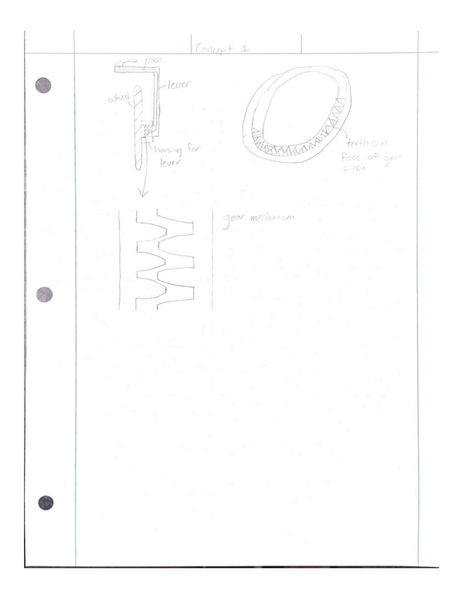 Concept 1
lever
wheel
housing for
lever
teeth on
face of gear
gear mechanism